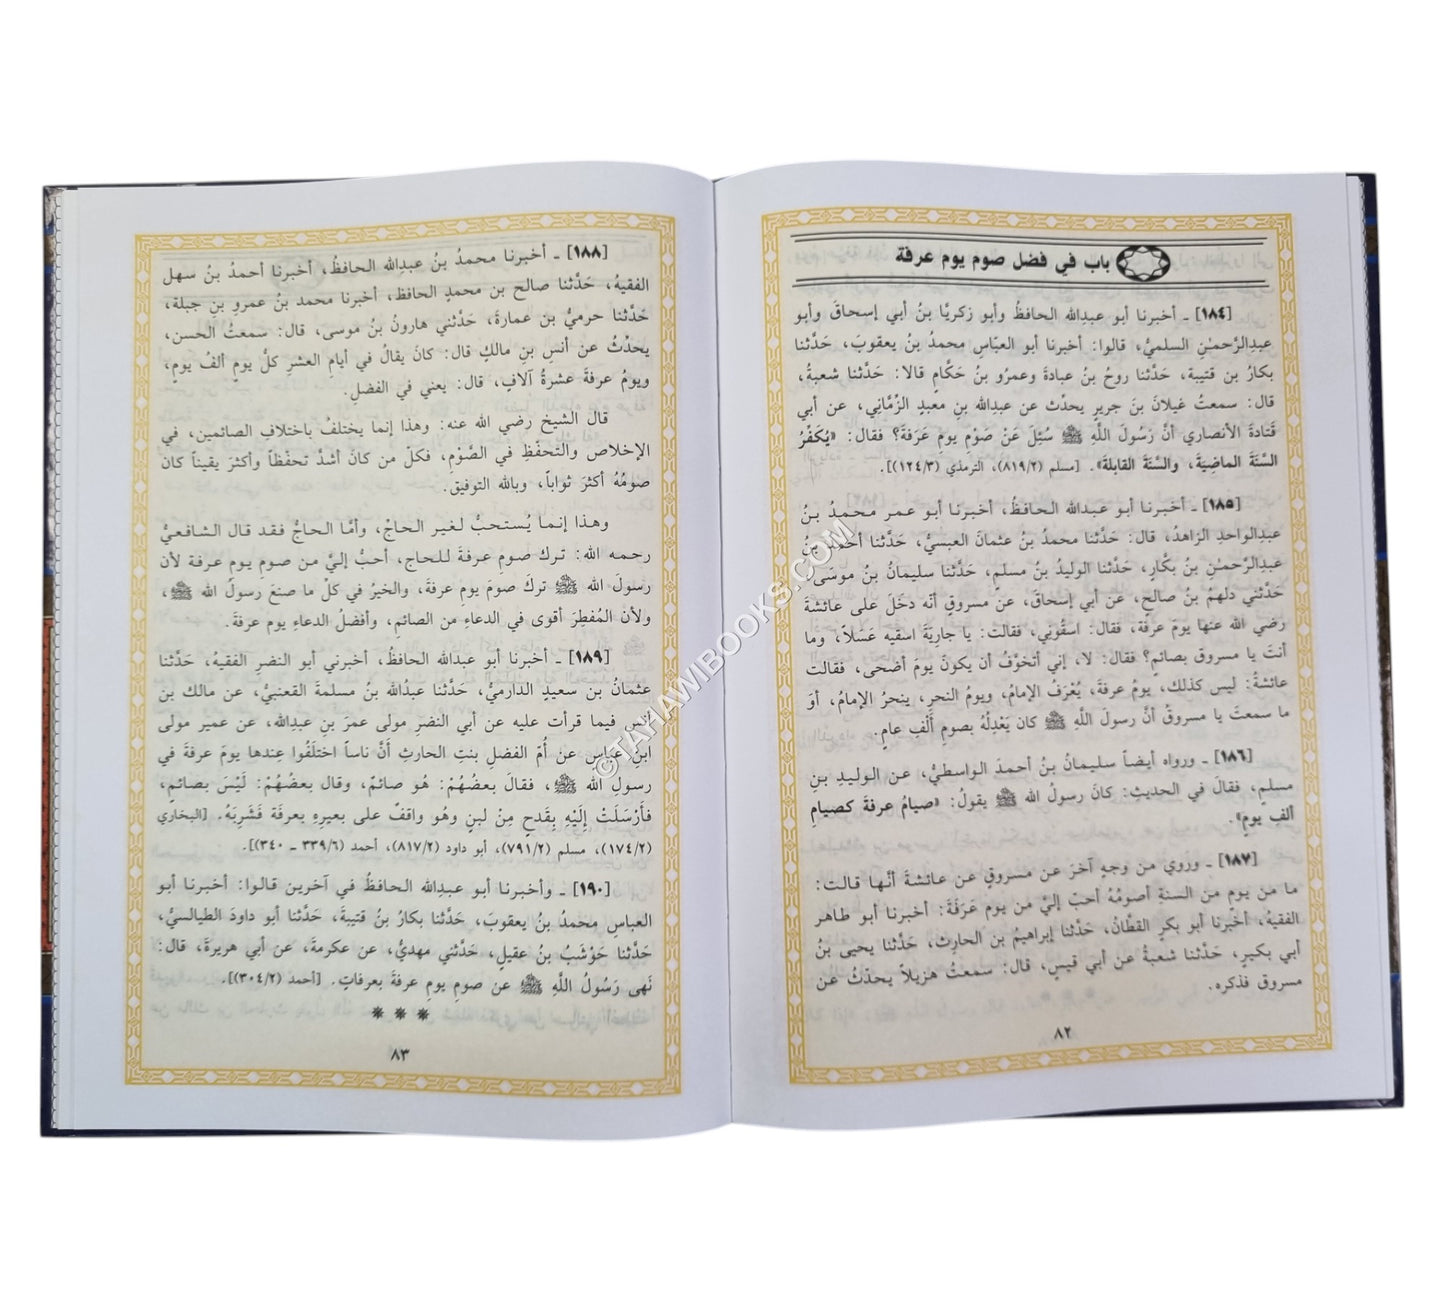 باب في فضل صوم يوم عرفة
[١٨٤] ـ أخبرنا أبو عبدِالله الحافظُ وأبو زكريَّا بنُ أبي إسحاقَ وأبو
عبدِالرَّحمٰنِ السلميُّ، قالوا: أخبرنا أبو العبَّاس محمدُ بنُ يعقوبَ، حَدَّثنا
بكارُ بن قتيبة، حَدَّثنا روحُ بنُ عبادةَ وعمرُو بنُ حَكَّامٍ قالا: حَدَّثنا شعبةُ،
قال: سمعتُ غيلانَ بنَ جريرٍ يحدّث عن عبدِالله بنِ معبدٍ الزِّمَّاني، عن أبي
قَتادةَ الأنصاري أنَّ رَسُولَ اللَّهِ ﷺ سُئِلَ عَنْ صَوْمِ يومِ عَرَفَةَ؟ فقال: «يُكَفِّرُ
السَّنَةَ الماضِيَةَ، والسَّنَةَ القابلةَ». [مسلم (٨١٩/٢)، الترمذي (١٢٤/٣)].
[١٨٥] ـ أخبرنا أبو عبدالله الحافظُ، أخبرنا أبو عمر محمدُ بنُ
عبدِالواحدِ الزاهدُ، قال: حَدَّثنا محمدُ بنُ عثمانَ العبسيُّ، حَدَّثنا أحمدُ بنُ
عبدِالرَّحمٰنِ بنُ بكَّارٍ، حَدَّثنا الوليدُ بنُ مسلمٍ، حَدَّثنا سليمانُ بنُ موسَى،
حَدَّثني دلهمُ بنُ صالحٍ، عن أبي إسحاقَ، عن مسروقٍ أنَّه دخَلَ على عائشةَ
رضي الله عنها يومَ عرفةَ، فقال: اسقُوني، فقالت: يا جاريَةَ اسقيه عَسَلاً، وما
أنتَ يا مسروق بصائمٍ؟ فقال: لا، إني أتخوَّفُ أن يكونَ يومَ أضحى، فقالت
عائشةُ: ليس كذلك، يومُ عرفةَ، يُعْرَفُ الإمامُ، ويومُ النحرِ، ينحرُ الإمامُ، أوَ
ما سمعتَ يا مسروقُ أنَّ رسولَ اللَّهِ ﷺ كان يَعْدِلُهُ بصومِ ألفِ عامٍ.
[١٨٦] ـ ورواه أيضاً سليمانُ بنُ أحمدَ الواسطيُّ، عن الوليدِ بنِ
مسلمٍ، فقالَ في الحديثِ: كانَ رسولُ الله ﷺ يقولُ: «صيامُ عرفةَ كصيامِ
ألفِ يومٍ».
[١٨٧] ـ وروي من وجهٍ آخرَ عن مسروقٍ عن عائشةَ أنَّها قالت:
ما من يوم من السنةِ أصومُهُ أحبّ إليَّ من يوم عَرَفَةَ: أخبرنا أبو طاهر
الفقيهُ، أخبرنا أبو بكرٍ القطَّانُ، حَدَّثنا إبراهيمُ بن الحارثِ، حَدَّثنا يحيى بنُ
أبي بكيرٍ، حَدَّثنا شعبةُ عن أبي قيسٍ، قال: سمعتُ هزيلاً يحدّثُ عن
مسروق فذكره.
٨٢
[١٨٨] ـ أخبرنا محمدُ بنُ عبدِالله الحافظُ، أخبرنا أحمدُ بنُ سهل
الفقيهُ، حَدَّثنا صالح بن محمدٍ الحافظ، أخبرنا محمد بنُ عمرو بنِ جبلة،
حَدَّثنا حرميُّ بن عمارةَ، حَدَّثني هارونُ بنُ موسى، قال: سمعتُ الحسن،
يحدِّثُ عن أنسِ بنِ مالكٍ قال: كانَ يقالُ في أيامِ العشرِ كلَّ يومٍ ألفُ يومٍ،
ويومُ عرفةَ عشرةُ آلافٍ، قال: يعني في الفضلِ.
قال الشيخ رضي الله عنه: وهذا إنما يختلفُ باختلافِ الصائمين، في
الإخلاص والتحفّظِ في الصَّوْمِ، فكلّ من كانَ أشدَّ تحفّظاً وأكثرَ يقيناً كان
صومُهُ أكثرَ ثواباً، وبالله التوفيق.
وهذا إنما يُستحبُّ لغير الحاجّ، وأمَّا الحاجُّ فقد قال الشافعيُّ
رحمه الله: ترك صَومَ عرفةَ للحاج، أحبُّ إليَّ من صوم يوم عرفة لأن
رسولَ الله ﷺ تركَ صوَمَ يومِ عرفةَ، والخيرُ في كلِّ ما صنعَ رسولُ الله ﷺ،
ولأن المُفطِرَ أقوى في الدعاءِ من الصائمِ، وأفضلُ الدعاءِ يوم عرفةَ.
[١٨٩] ـ أخبرنا أبو عبدالله الحافظُ، أخبرني أبو النضرِ الفقيهُ، حَدَّثنا
عثمانُ بن سعيدٍ الدارميُّ، حَدَّثنا عبدُالله بنُ مسلمةَ القعنبيُّ، عن مالك بن
أنس فيما قرأت عليه عن أبي النضرِ مولى عمرَ بنِ عبدِالله، عن عمير مولى
ابنِ عباس عن أُمِّ الفضلِ بنتِ الحارثِ أنَّ ناساً اختلَفُوا عِندها يومَ عرفةَ في
رسولِ الله ﷺ، فقالَ بعضُهُمْ: هُو صائمٌ، وقال بعضُهُمْ: لَيْسَ بصائمٍ،
فأَرْسَلَتْ إلَيْهِ بِقَدحٍ مِنْ لبنٍ وهُو واقفٌ على بعيرِهِ بعرفَة فَشَرِبَهُ. [البخاري
(١٧٤/٢)، مسلم (٧٩١/٢)، أبو داود (٨١٧/٢)، أحمد (٣٣٩/٦ ـ ٣٤٠)].
[١٩٠] ـ وأخبرنا أبو عبدِالله الحافظُ في آخرين قالوا: أخبرنا أبو
العباسِ محمدُ بنُ يعقوبَ، حَدَّثنا بكارُ بنُ قتيبةَ، حَدَّثنا أبو داودَ الطيالسيُّ،
حَدَّثنا حَوْشَبُ بنُ عقيلٍ، حَدَّثني مهديُّ، عن عكرمةَ، عن أبي هريرةَ، قال:
نَهى رَسُولُ اللَّهِ ﷺ عن صومِ يومِ عرفةَ بعرفاتٍ. [أحمد (٣٠٤/٢)].
* * *
٨٣
©TAHAWIBOOKS.COM